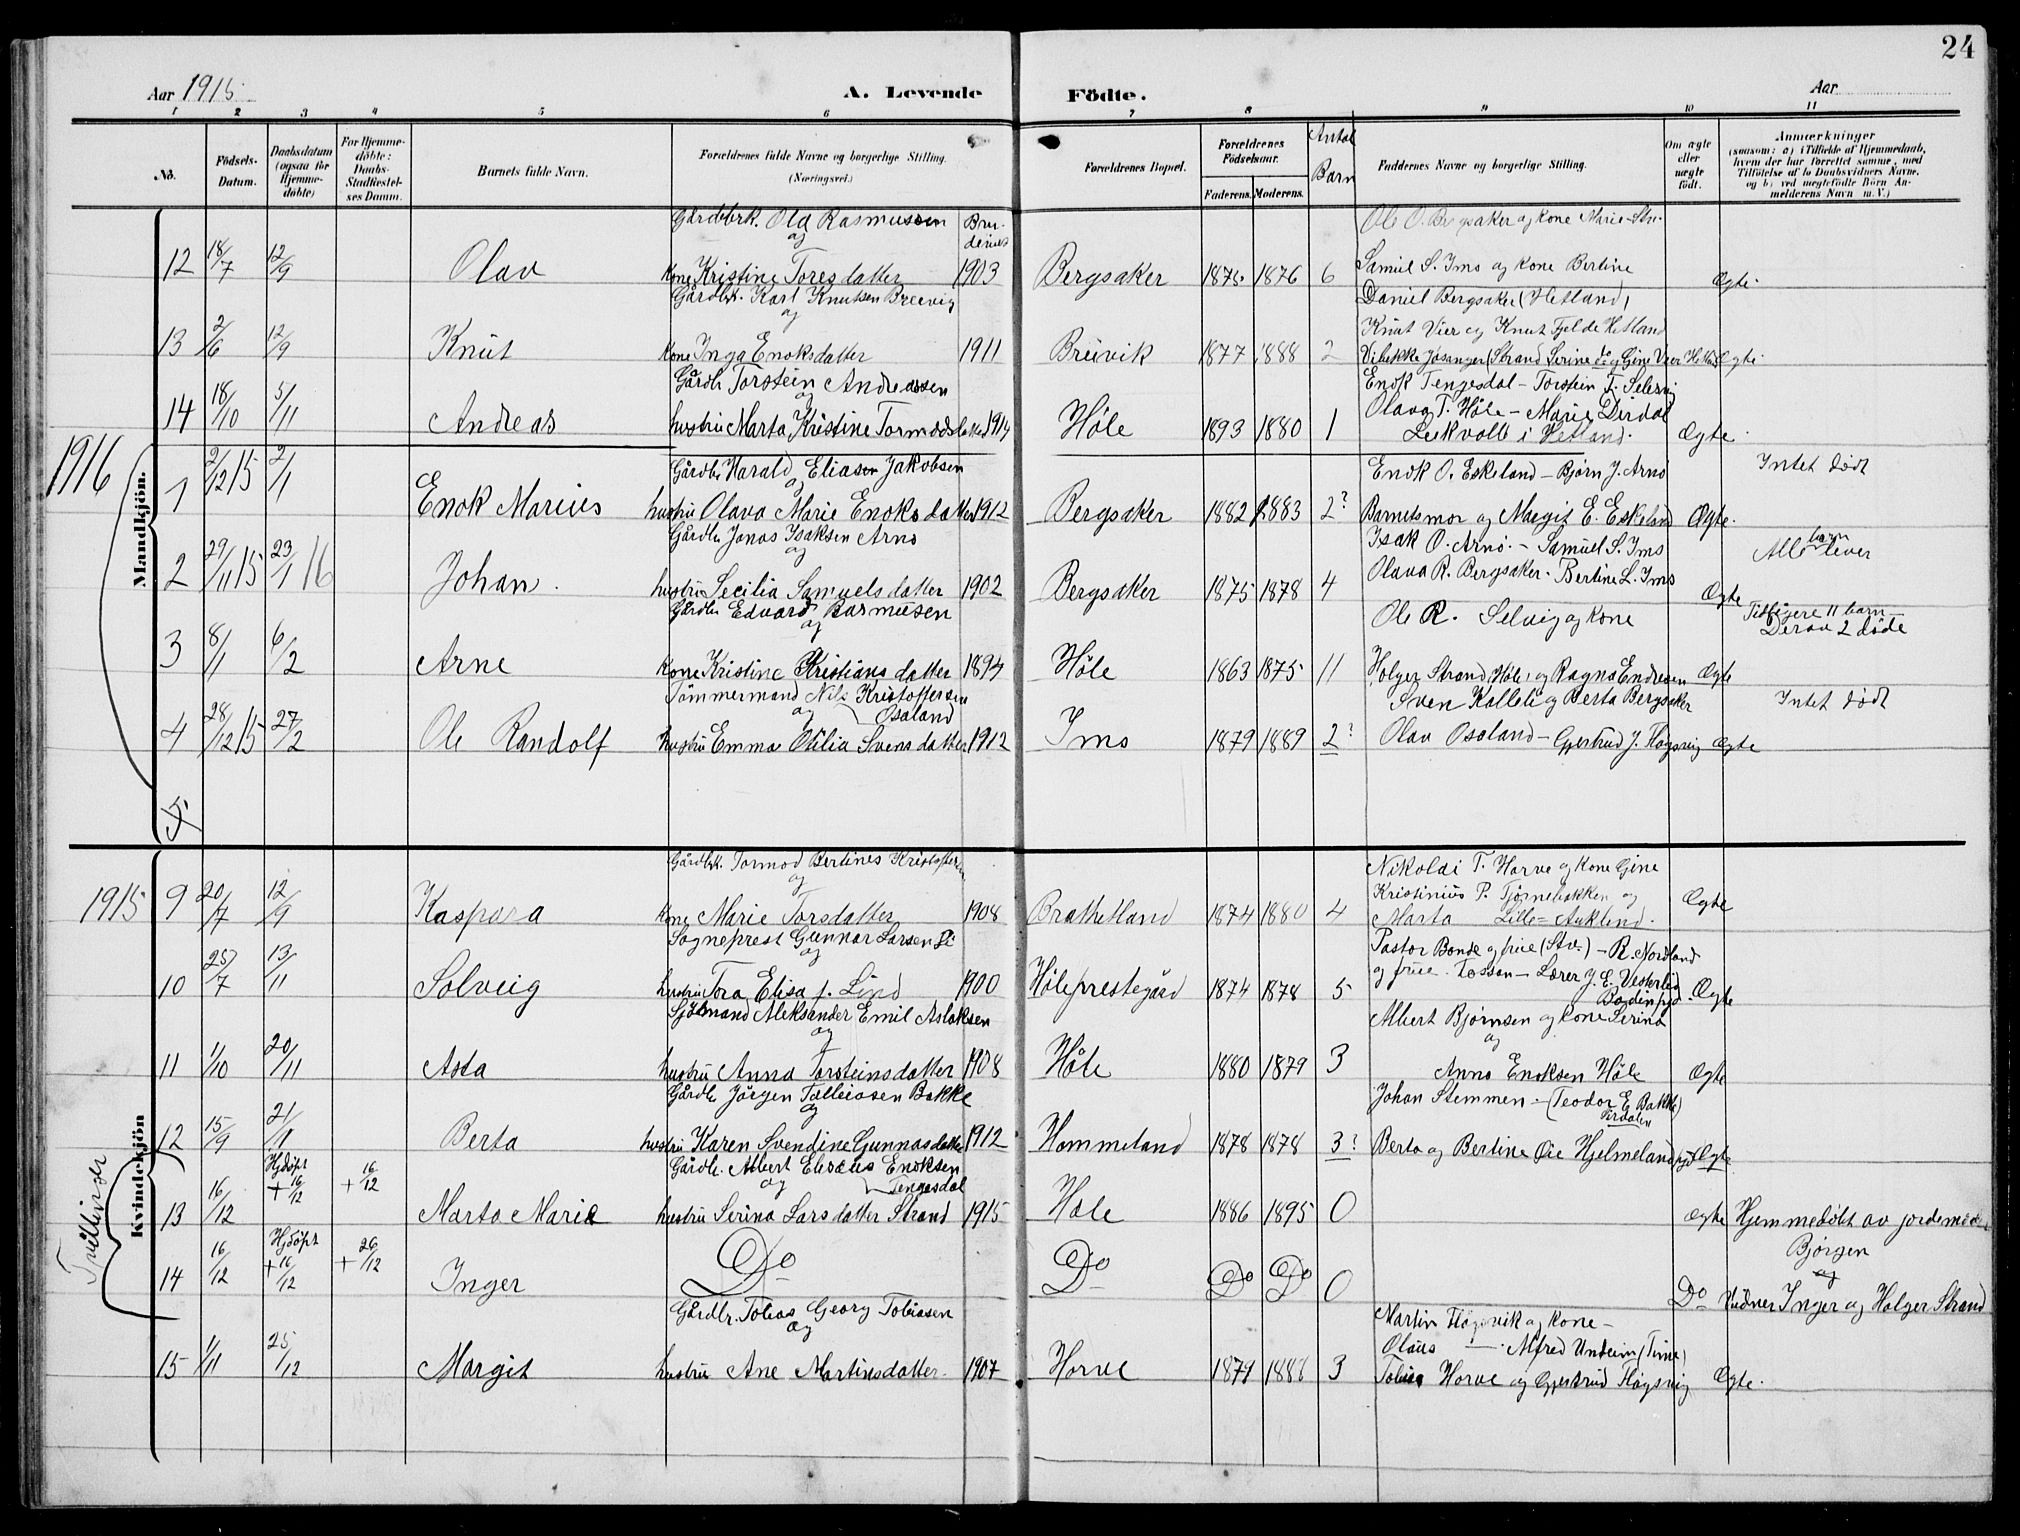 24
Aar 1915
A. Levende Födte.
Aar
1 2 3 4 5 6 7 8 9 10 11
No.
Födsels-Datum.
Daabsdatum (ogsaa for Hjemmedöbte)
For Hjemmedöbte: Daabs-Stadfæstelses Datum.
Barnets fulde Navn.
Forældrenes fulde Navne og borgerlige Stilling. (Næringsvei.)
Forældrenes Bopæl.
Forældrenes Födselsaar.
Faderens. Moderens.
Antal Barn
Faddernes Navne og borgerlige Stilling.
Om ægte eller uægte födt.
Anmærkninger
(saasom: a) i Tilfælde af Hjemmedaab, hvem der har forrettet samme, med Tilföielse af to Daabsvidners Navne, og b) ved uægtefödte Börn Anmelderens Navn m. V.)
Mandkjön.
Gårdbrk. Ola Rasmussen
og
Ole O. Bergsaker og kone Marie
12 18/7 12/9 Olav kone Kristine Toresdatter 1903 Bergsaker 1875 1876 6 Samuel S. Ims og kone Bertine Ægte.
Gårdbr. Karl Knutsen Breivig
og
Daniel Bergsaker (Hetland)
Knut Vier og Knut Fjelde Hetland
13 2/6 12/9 Knut kone Inga Enoksdatter 1911 Breivik 1877 1888 2 Ægte.
Gårdbr Torstein Andreassen
og
Enok Tengesdal – Torstein T. Selvig
Olava T. Høle – Marie Dirdal
14 18/10 5/11 Andreas hustru Marta Kristine Tormodsdatter 1914 Høle 1893 1880 1 Lekvoll i Hetland. Ægte
1916
Gårdbr Harald Eliasen Jakobsen
og
Enok O. Eskeland – Bjørn J. Arnø
Intet dødt
1 2/12 15 2/1 Enok Marius hustru Olava Marie Enoksdatter 1912 Bergsaker 1882 1883 2? Barnets mor og Margit E. Eskeland Ægte.
Gårdbr Jonas Isaksen Arnø
og
Isak O. Arnø. – Samuel S. Ims
Alle barn lever
2 29/11 15 23/1 16 Johan. hustru Secilia Samuelsdatter 1902 Bergsaker 1875 1878 4 Olava R. Bergsaker. Bertine L. Ims Ægte
Gårdbr Edvard Rasmussen
og
Ole R. Selvig og kone
Tidligere 11 barn
Derav 2 døde
3 8/1 6/2 Arne kone Kristine Kristiansdatter 1894 Høle 1863 1875 11 Holger Strand, Høle, og Ragna Endresen Ægte
Tømmermand Nils Kristoffersen Osaland
og
Sven Kalleli og Berta Bergsaker
Intet dødt
4 28/12 15 27/2 Ole Randolf hustru Emma Otilia Svensdatter 1912 Ims 1879 1889 2? Olav Osaland – Gjertrud J. Høgsvig Ægte
5
Kvindekjön
1915
Gårdbrk. Tormod Bertines Kristoffersen
og
Nikolai T. Horve og kone Gine
Kristinius P. Tjørnebakken og
9 20/7 12/9 Kaspara kone Marie Torsdatter 1908 Brathetland 1874 1880 4 Marta Lille-Aukland. Ægte
Sogneprest Gunnar Larsen Li
og
Pastor Bonde og frue (Stv.) – R. Nordland
og frue. Fossan – Lærer J. E. Vesterlid
10 25/7 13/11 Solveig hustru Tora Elisa f. Lind 1900 Høle prestegård 1874 1878 5 Ægte
Sjömand Aleksander Emil Aslaksen
og
Albert Bjørnsen og kone Serina
og
11 1/10 20/11 Asta hustru Anna Torsteinsdatter 1908 Høle 1880 1879 3 Anna Enoksen Høle Ægte
Gårdbr Jörgen Tolleiasen Bakke
og
Johan Stemmen – (Teodor E. Bakke) Dirdalen
12 15/9 21/11 Berta hustru Karen Svendine Gunnasdatter 1912 Hommeland 1878 1878 3? Berta og Bertine Øie Hjelmeland Ægte
Tvillinger
Gårdbr. Albert Eliseus Enoksen Tengesdal
og
13 16/12 Hjdöpt + 16/12 + 16/12 Marta Marie hustru Serina Larsdatter Strand 1915 Høle 1886 1895 0 Ægte Hjemmedøbt av jordemoder
Bjørgen
og
14 16/12 Hjdöpt + 16/12 + 26/12 Inger Do Do Do Do 0 Do Vidner Inger og Holger Strand
Gårdbr. Tobias Georg Tobiasen
og
Martin Høgsvik og kone –
Olaus – Alfred Undeim (Time)
15 1/11 25/12 Margit hustru Ane Martinsdatter 1907 Horve 1879 1888 3 Tobias Horve og Gjertrud Høgsvig Ægte.